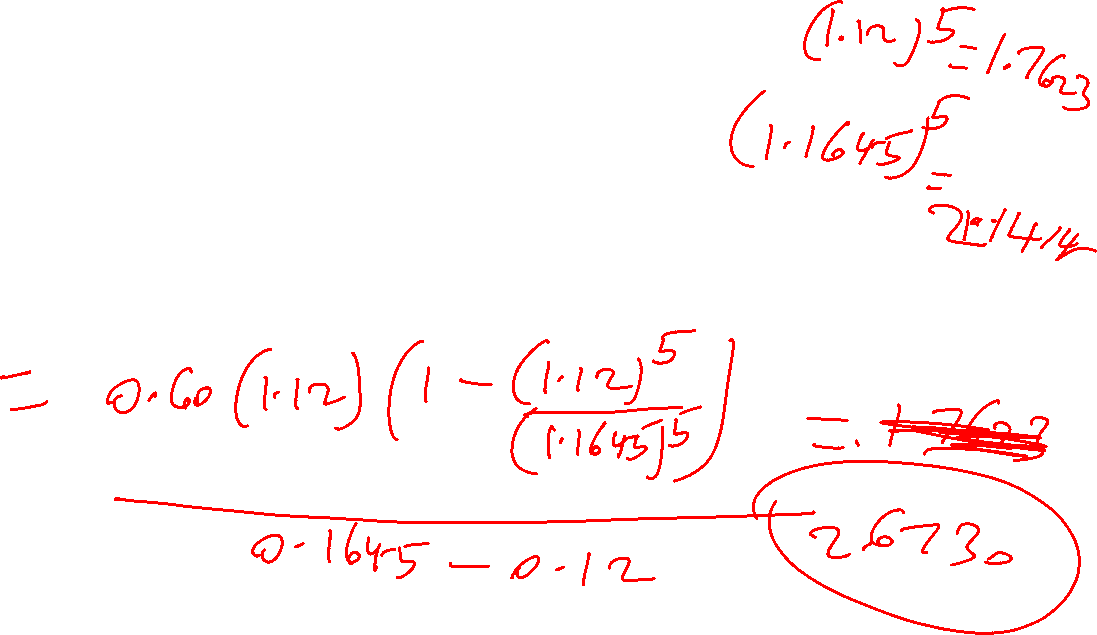 (1.12)^5 = 1.7623
(1.1645)^5
=
2.1414
= 0.60 (1.12) (1 - (1.12)^5 / (1.1645)^5) / 0.1645 - 0.12 = 2.6730